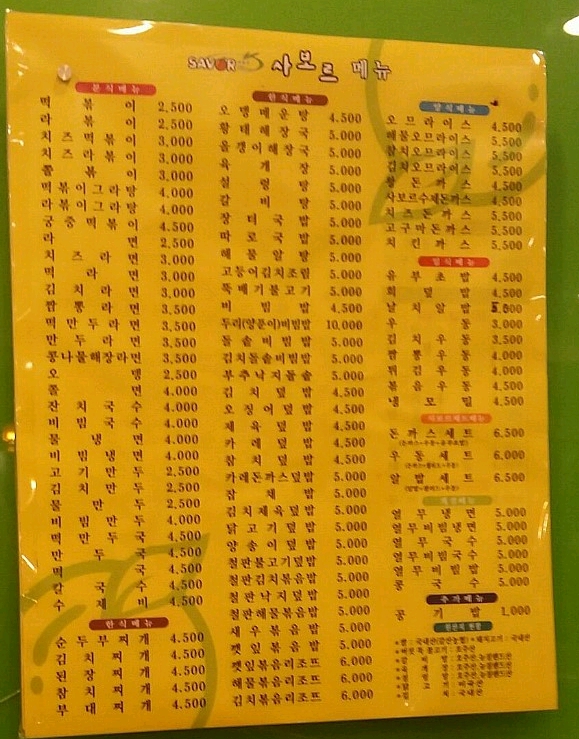 SAVOR 사보르 메뉴
분식메뉴
떡볶이 2.500
라볶이 2.500
치즈떡볶이 3,000
치즈라볶이 3,000
쫄볶이 3.000
떡볶이그라탕 4.000
라볶이그라탕 4.000
궁중떡볶이 4.500
라면 2.500
치즈라면 3.000
떡라면 3,000
김치라면 3,000
짬뽕라면 3,500
떡만두라면 3.500
만두라면 3.500
콩나물해장라면 3.500
오뎅 2.500
쫄면 4.000
잔치국수 4.000
비빔국수 4.000
물냉면 4.000
비빔냉면 4.000
고기만두 2,500
김치만두 2,500
물만두 2.500
비빔만두 4.000
떡만두국 4.500
만두국 4.500
떡국 4.500
칼국수 4.500
수제비 4.500
한식메뉴
순두부찌개 4.500
김치찌개 4.500
된장찌개 4.500
참치찌개 4.500
부대찌개 4.500
한식메뉴
오뎅매운탕 4.500
황태해장국 5.000
올갱이해장국 5.000
육개장 5.000
설렁탕 5.000
갈비탕 5.000
장터국밥 5.000
따로국밥 5.000
해물알탕 5.000
고등어김치조림 5.000
뚝배기불고기 5.000
비빔밥 4.500
두리(양푼이)비빔밥 10.000
돌솥비빔밥 5.000
김치돌솥비빔밥 5.000
부추낙지돌솥 5.000
김치덮밥 4.500
오징어덮밥 4.500
제육덮밥 4.500
카레덮밥 4.500
참치덮밥 4.500
카레돈까스덮밥 5.000
잡채밥 5.000
김치제육덮밥 5.000
닭고기덮밥 5.000
양송이덮밥 5.000
철판불고기덮밥 5.000
철판김치볶음밥 5.000
철판낙지덮밥 5.000
철판해물볶음밥 5.000
새우볶음밥 5.000
깻잎볶음밥 5.000
깻잎볶음리조프 6.000
해물볶음리조프 6.000
김치볶음리조프 6.000
양식메뉴
오므라이스 4.500
해물오므라이스 5.500
참치오므라이스 5.500
김치오므라이스 5.500
왕돈까스 4.500
사보르수제돈까스 4.500
치즈돈까스 5.500
고구마돈까스 5,500
치킨까스 5,500
일식메뉴
유부초밥 4.500
회덮밥 4.500
날치알밥 5.000
우동 3.000
김치우동 3.500
짬뽕우동 4.000
튀김우동 4.000
볶음우동 4.500
냉모밀 4.500
돈까스세트 6.500
우동세트 6.000
알밥세트 6.500
열무냉면 5.000
열무비빔냉면 5.000
열무국수 5.000
열무비빔국수 5.000
열무비빔밥 5.000
콩국수 5.000
추가메뉴
공기밥 1,000